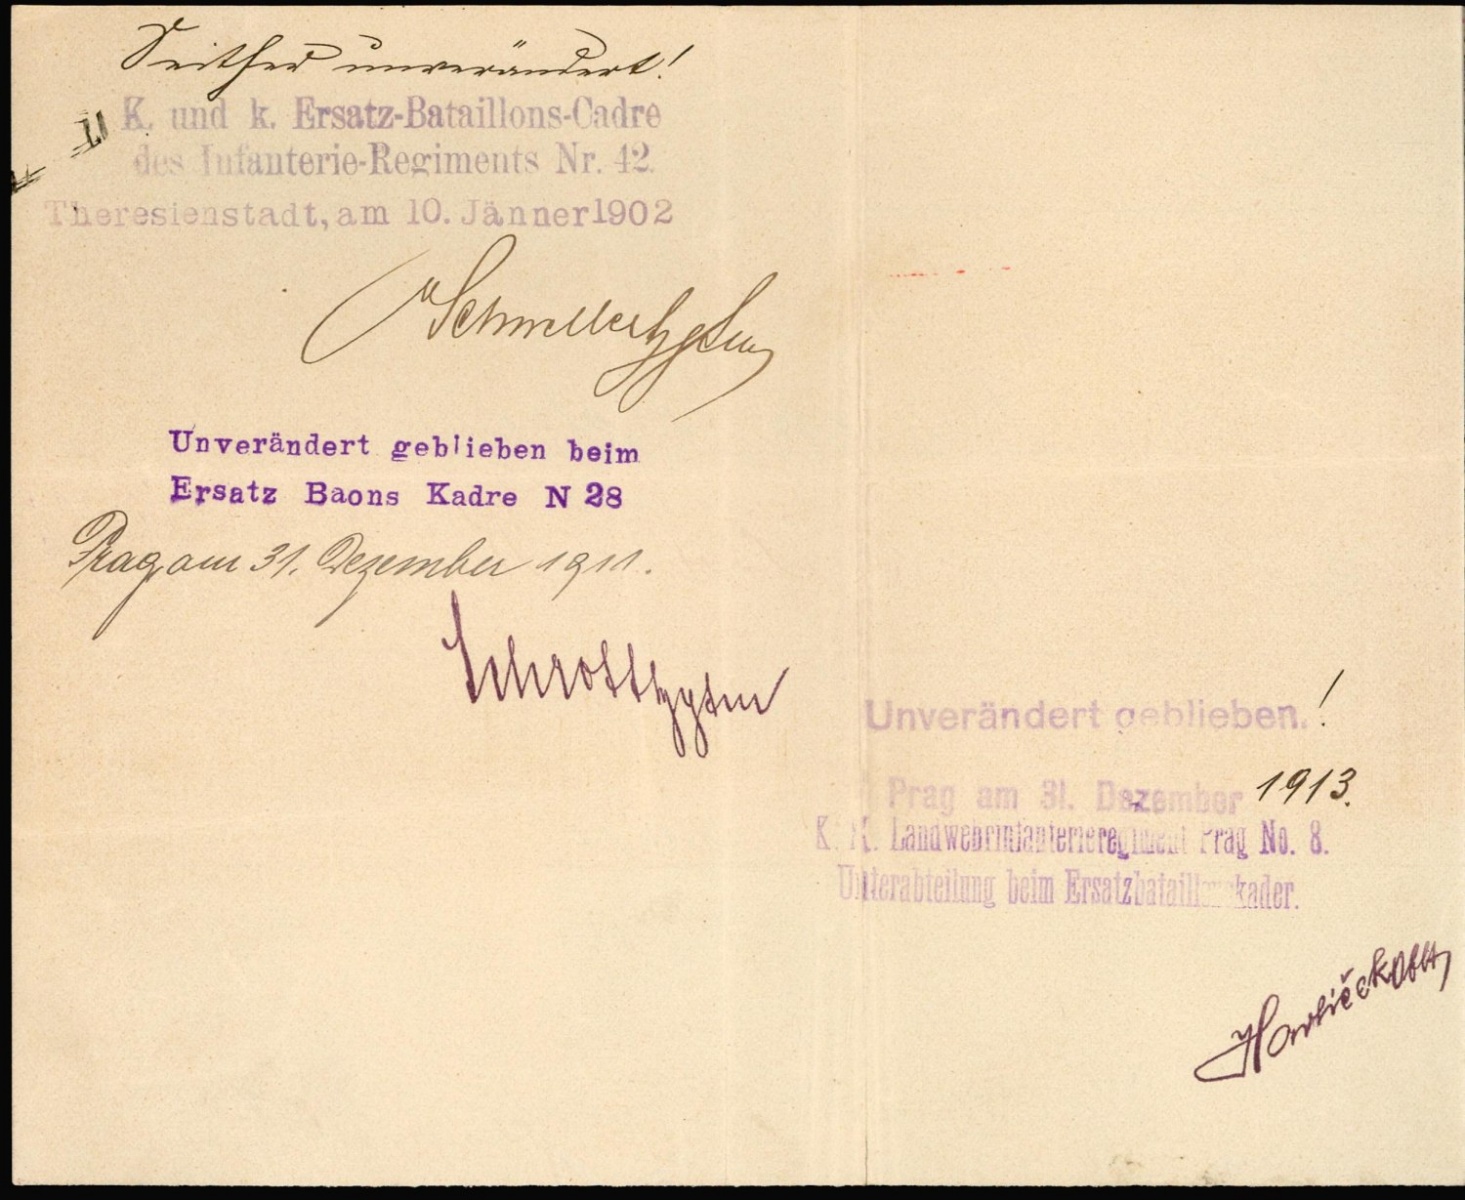 Seither unverändert!
K. und k. Ersatz-Bataillons-Cadre
des Infanterie-Regiments Nr. 42.
Theresienstadt, am 10. Jänner 1902
Unverändert geblieben beim
Ersatz Baons Kadre N 28
Prag am 31. Dezember 1911.
Schrott hptm
Unverändert geblieben.!
Prag am 31. Dezember 1913.
K. K. Landwehrinfanterieregiment Prag No. 8.
Unterabteilung beim Ersatzbataillonskader.